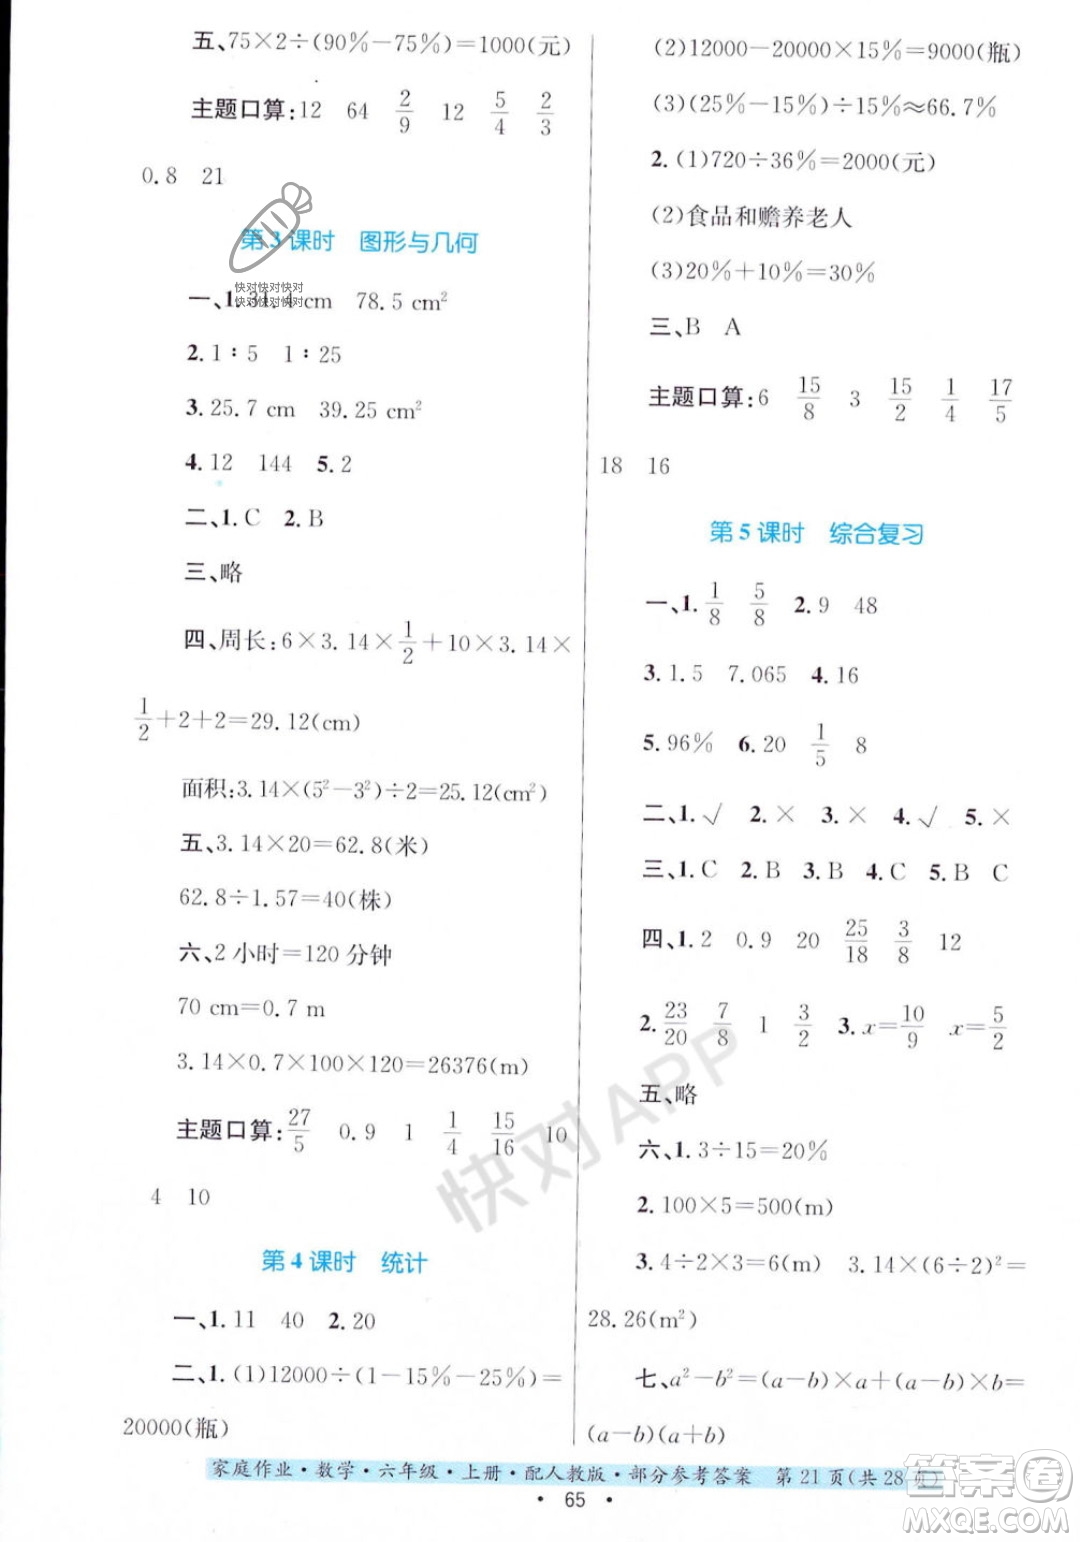 五、75×2÷(90%－75%)＝1000(元)
主题口算:12　64　2/9　12　5/4　2/3
0.8　21
第3课时　图形与几何
快对快对快对
快对快对快对
一、1.31.4 cm　78.5 cm²
2.1∶5　1∶25
3.25.7 cm　39.25 cm²
4.12　144　5.2
二、1.C　2.B
三、略
四、周长:6×3.14×1/2＋10×3.14×
1/2＋2＋2＝29.12(cm)
面积:3.14×(5²－3²)÷2＝25.12(cm²)
五、3.14×20＝62.8(米)
62.8÷1.57＝40(株)
六、2 小时＝120 分钟
70 cm＝0.7 m
3.14×0.7×100×120＝26376(m)
主题口算:27/5　0.9　1　1/4　15/16　10
4　10
第4课时　统计
一、1.11　40　2.20
二、1.(1)12000÷(1－15%－25%)＝
20000(瓶)
(2)12000－20000×15%＝9000(瓶)
(3)(25%－15%)÷15%≈66.7%
2.(1)720÷36%＝2000(元)
(2)食品和赡养老人
(3)20%＋10%＝30%
三、B　A
主题口算:6　15/8　3　15/2　1/4　17/5
18　16
第5课时　综合复习
一、1.1/8　5/8　2.9　48
3.1.5　7.065　4.16
5.96%　6.20　1/5　8
二、1.√　2.×　3.×　4.√　5.×
三、1.C　2.B　3.B　4.C　5.B　C
四、1.2　0.9　20　25/18　3/8　12
2.23/20　7/8　1　3/2　3.x＝10/9　x＝5/2
五、略
六、1.3÷15＝20%
2.100×5＝500(m)
3.4÷2×3＝6(m)　3.14×(6÷2)²＝
28.26(m²)
七、a²－b²＝(a－b)×a＋(a－b)×b＝
(a－b)(a＋b)
快对APP
家庭作业·数学·六年级·上册·配人教版·部分参考答案　第21页(共28页)
·65·
答案圈
MXQE.COM